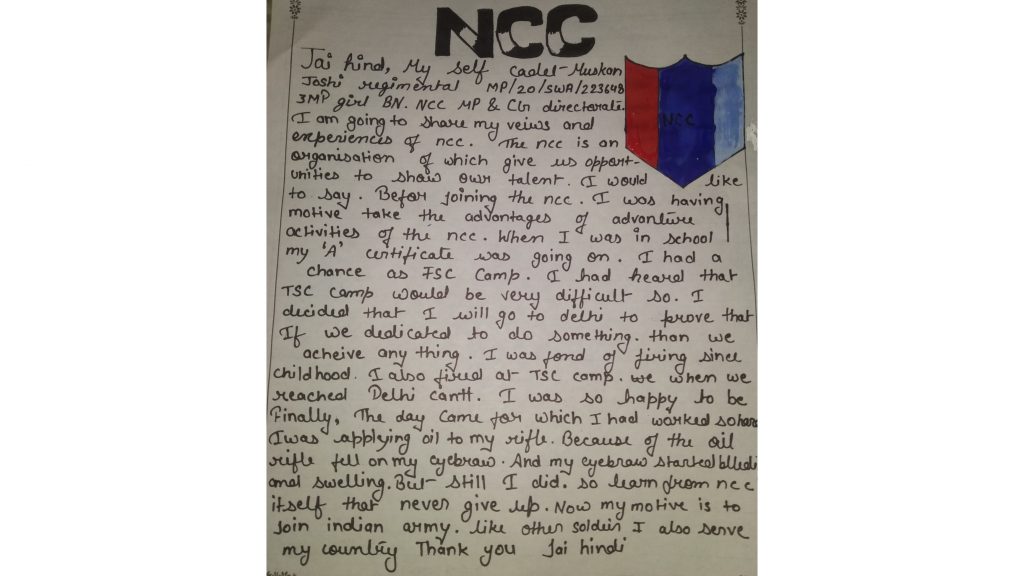 NCC
Jai hind, My self cadet-Muskan
Joshi regimental MP/20/SWA/223648
3MP girl BN. NCC MP & CG directorate.
NCC
I am going to share my veiws and
experiences of ncc. The ncc is an
organisation of which give us opport-
unities to show owr talent. I would like
to say. Befor joining the ncc. I was having
motive take the advantages of advanture
activities of the ncc. When I was in school
my 'A' certificate was going on. I had a
chance as TSC Camp. I had heard that
TSC camp would be very difficult so. I
decided that I will go to delhi to prove that
If we dedicated to do something. than we
acheive any thing. I was fond of firing since
childhood. I also fired at TSC camp. we when we
reached Delhi cantt. I was so happy to be
Finally, The day came for which I had worked so hard
I was applying oil to my rifle. Because of the oil
rifle fell on my eyebraw. And my eyebraw started bleedi
and swelling. But still I did. so learn from ncc
itself that never give up. Now my motive is to
Join indian army. like other soldier I also serve
my country Thank you Jai hindi